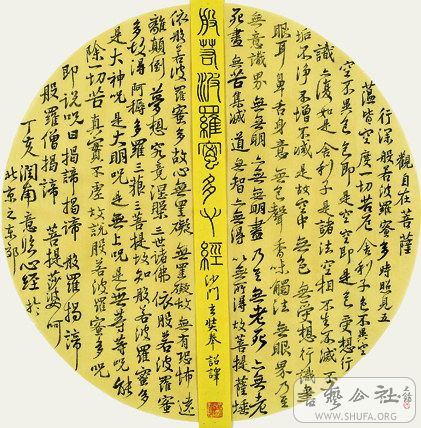 觀自在菩薩
行深般若波羅蜜多時照見五
蘊皆空度一切苦厄舍利子色不異空
空不異色色即是空空即是色受想行
識亦復如是舍利子是諸法空相不生不滅不
垢不淨不增不減是故空中無色無受想行識無
眼耳鼻舌身意無色聲香味觸法無眼界乃至
無意識界無無明亦無無明盡乃至無老死亦無老
死盡無苦集滅道無智亦無得以無所得故菩提薩埵
般若波羅蜜多心經 沙門玄奘奉詔譯
依般若波羅蜜多故心無罣礙無罣礙故無有恐怖遠
離顛倒夢想究竟涅槃三世諸佛依般若波羅蜜
多故得阿耨多羅三藐三菩提故知般若波羅蜜多
是大神咒是大明咒是無上咒是無等等咒能
除一切苦真實不虛故說般若波羅蜜多咒
即說咒曰揭諦揭諦 般羅揭諦
般羅僧揭諦 菩提薩婆訶
丁亥 意 心經於
北京之東郊
書藝公社
WWW.SHUFA.ORG